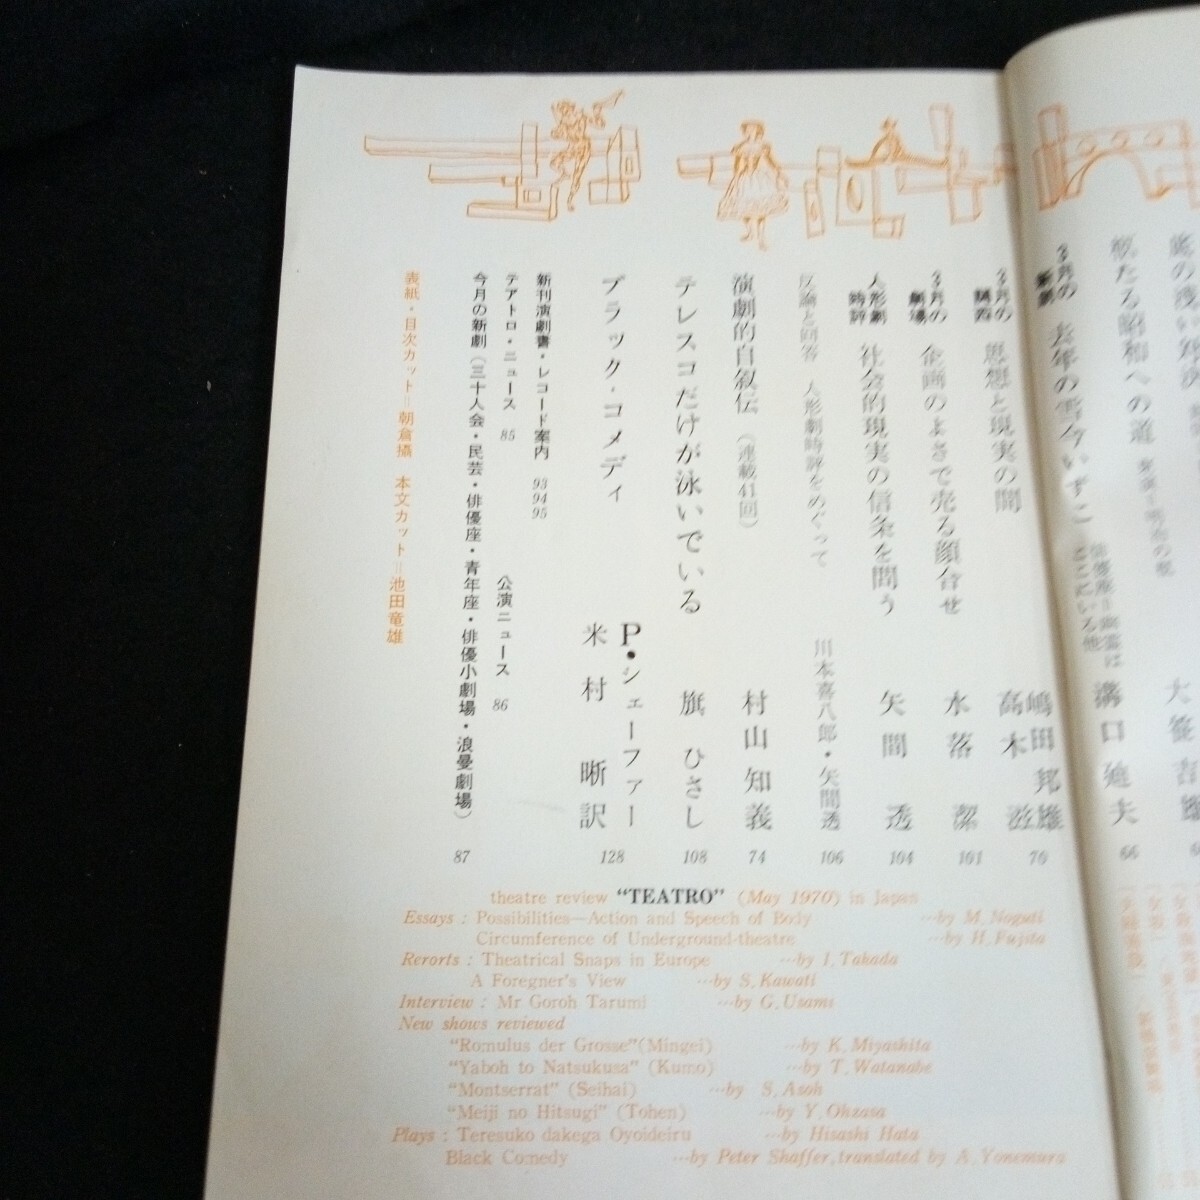 3月の新劇 去年の雪今いずこ 溝口廸夫 66
3月の関西 思想と現実の間 嶋田邦雄 高木滋 70
3月の劇場 企画のよさで売る顔合せ 水落潔 101
人形劇時評 社会的現実の信条を問う 矢間透 104
反論と回答 人形劇時評をめぐって 川本喜八郎・矢間透 106
演劇的自叙伝(連載41回) 村山知義 74
テレスコだけが泳いでいる 旗ひさし 108
ブラック・コメディ P・シェーファー 米村晰訳 128
新刊演劇書・レコード案内 93 94 95
テアトロ・ニュース 85 公演ニュース 86
今月の新劇(三十人会・民芸・俳優座・青年座・俳優小劇場・浪曼劇場) 87
表紙・目次カット=朝倉攝 本文カット=池田竜雄
theatre review "TEATRO" (May 1970) in Japan
Essays : Possibilities—Action and Speech of Body …by M. Noguti
Circumference of Underground-theatre …by H. Fujita
Rerorts : Theatrical Snaps in Europe …by I. Takada
A Foregner's View …by S. Kawati
Interview : Mr Goroh Tarumi …by G. Usami
New shows reviewed
"Romulus der Grosse"(Mingei) …by K. Miyashita
"Yaboh to Natsukusa" (Kumo) …by T. Watanabe
"Montserrat" (Seihai) …by S. Asoh
"Meiji no Hitsugi" (Tohen) …by Y. Ohzasa
Plays : Teresuko dakega Oyoideiru …by Hisashi Hata
Black Comedy …by Peter Shaffer, translated by A. Yonemura